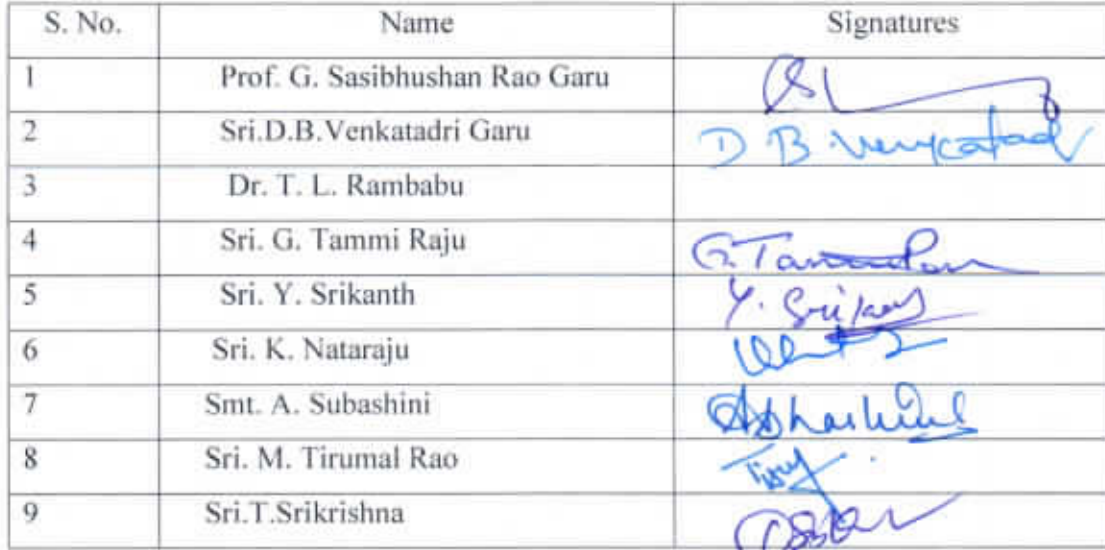 S. No. Name Signatures
1 Prof. G. Sasibhushan Rao Garu
2 Sri.D.B.Venkatadri Garu D B. Venkatad
3 Dr. T. L. Rambabu
4 Sri. G. Tammi Raju
5 Sri. Y. Srikanth
6 Sri. K. Nataraju
7 Smt. A. Subashini
8 Sri. M. Tirumal Rao
9 Sri.T.Srikrishna